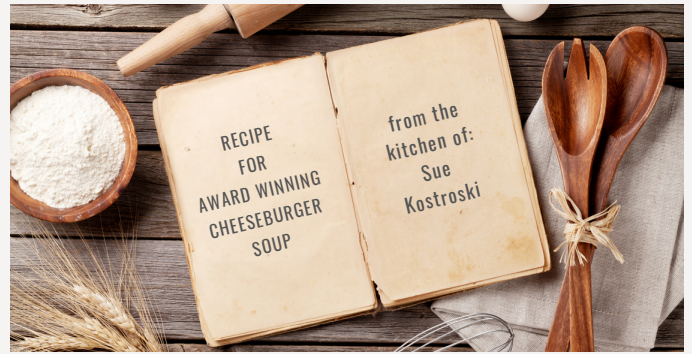 RECIPE
FOR
AWARD WINNING
CHEESEBURGER
SOUP
from the
kitchen of:
Sue
Kostroski